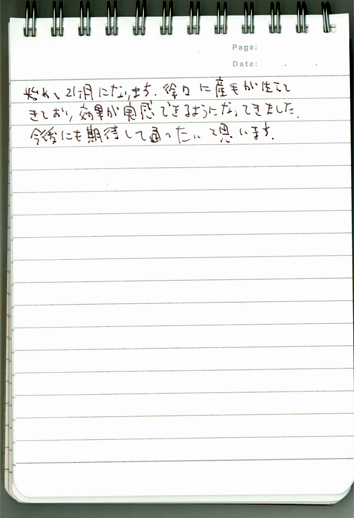 Page:
Date:
始めて2ヶ月になります。徐々に産毛が生えて
きており、効果が実感できるようになってきました。
今後にも期待して通いたいと思います。